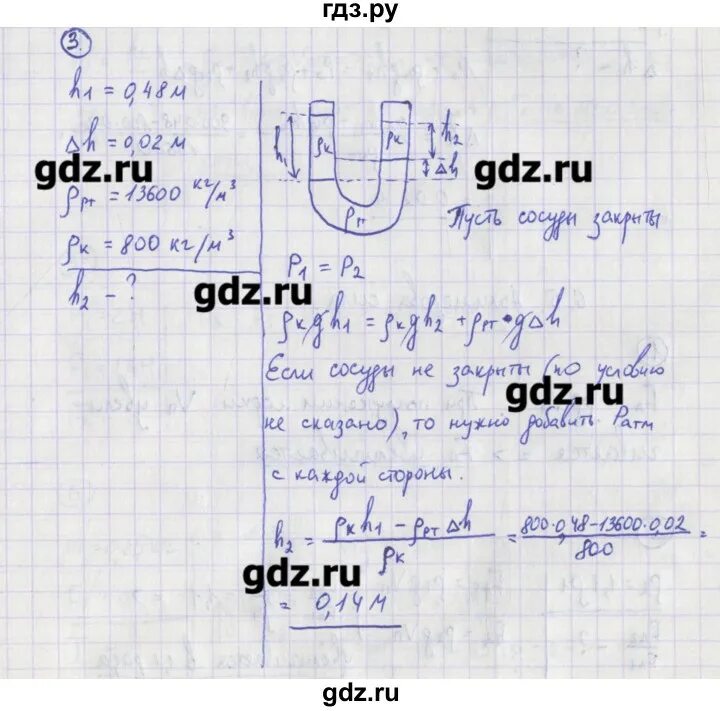 гдз.ру
3.
h1 = 0,48 м
Δh = 0,02 м
gdz.ru
ρрт = 13600 кг/м³
ρк = 800 кг/м³
h2 - ?
h1
ρк
ρк
h2
Δh
ρрт
gdz.ru
Пусть сосуды закрыты
gdz.ru
P1 = P2
ρк g h1 = ρк g h2 + ρрт · g Δh
Если сосуды не закрыты (по условию
gdz.ru
не сказано), то нужно добавить Pатм
с каждой стороны.
h2 = (ρк h1 – ρрт Δh)/ρк = (800·0,48–13600·0,02)/800 =
gdz.ru
= 0,14 м
gdz.ru